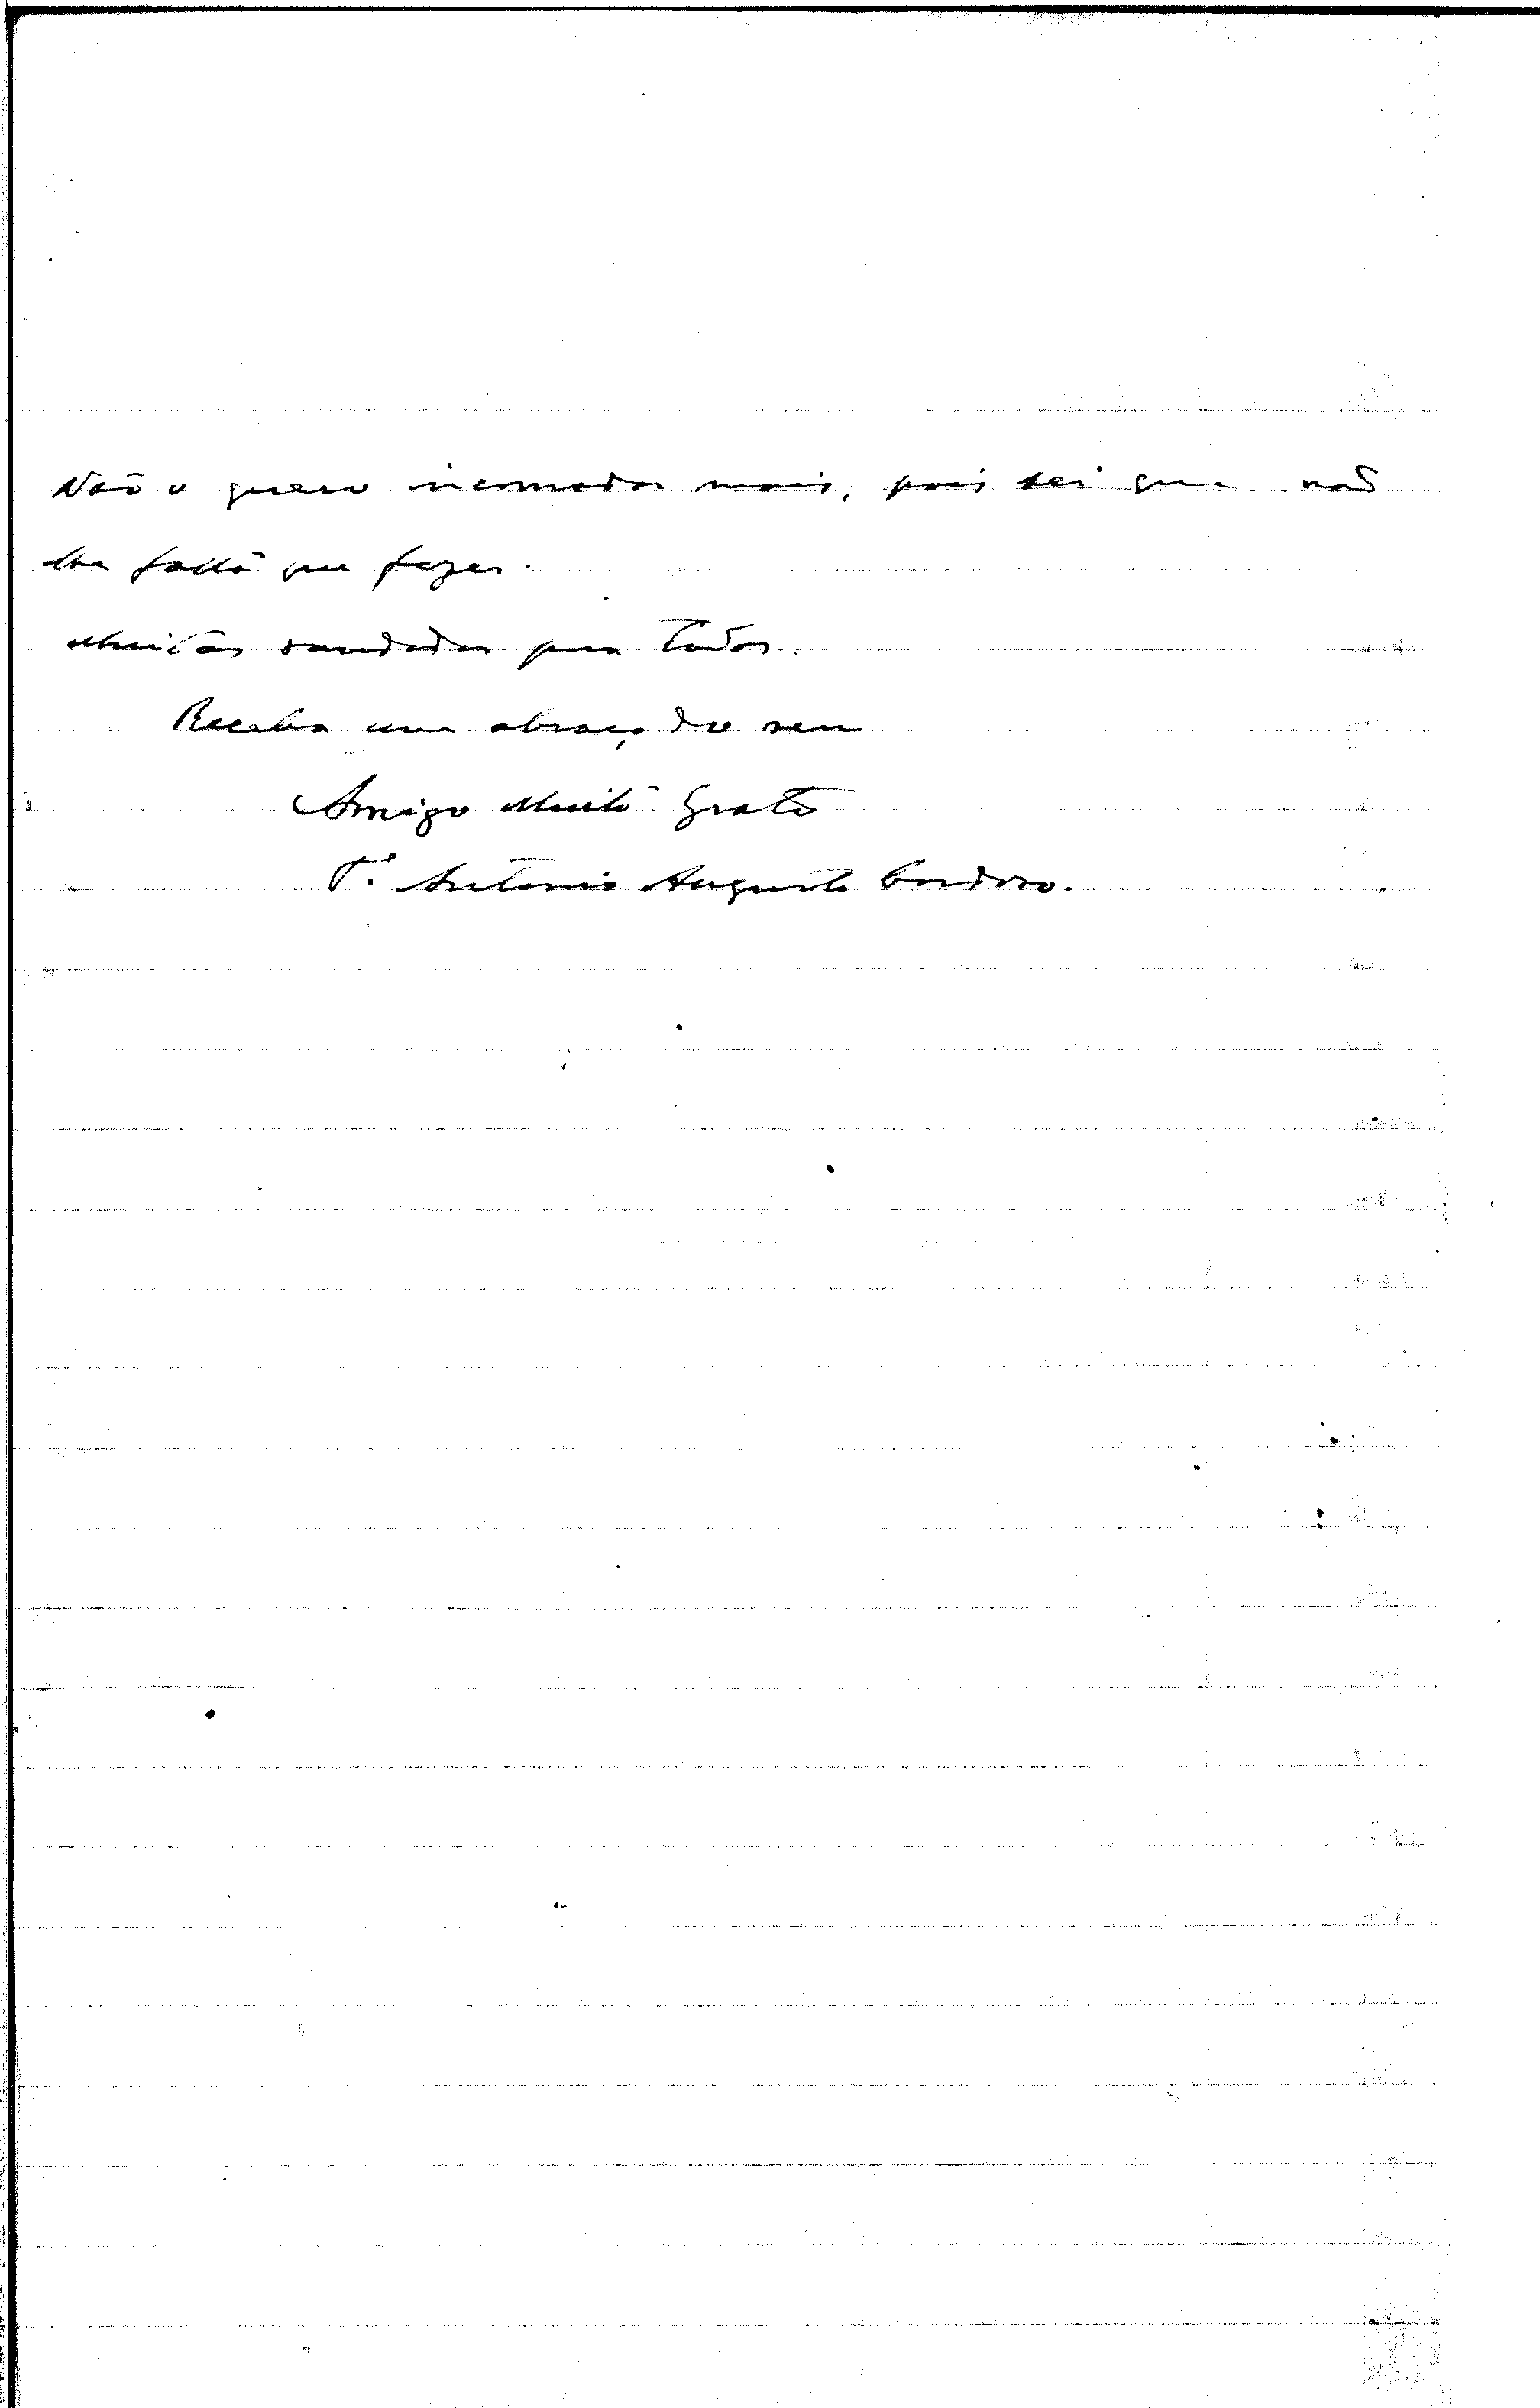 Não o quero incomodar mais, pois sei que não
lhe falta que fazer.
Muitas saudades para todos.
Receba um abraço do seu
Amigo Muito Grato
P.e Antonio Augusto Cardoso.